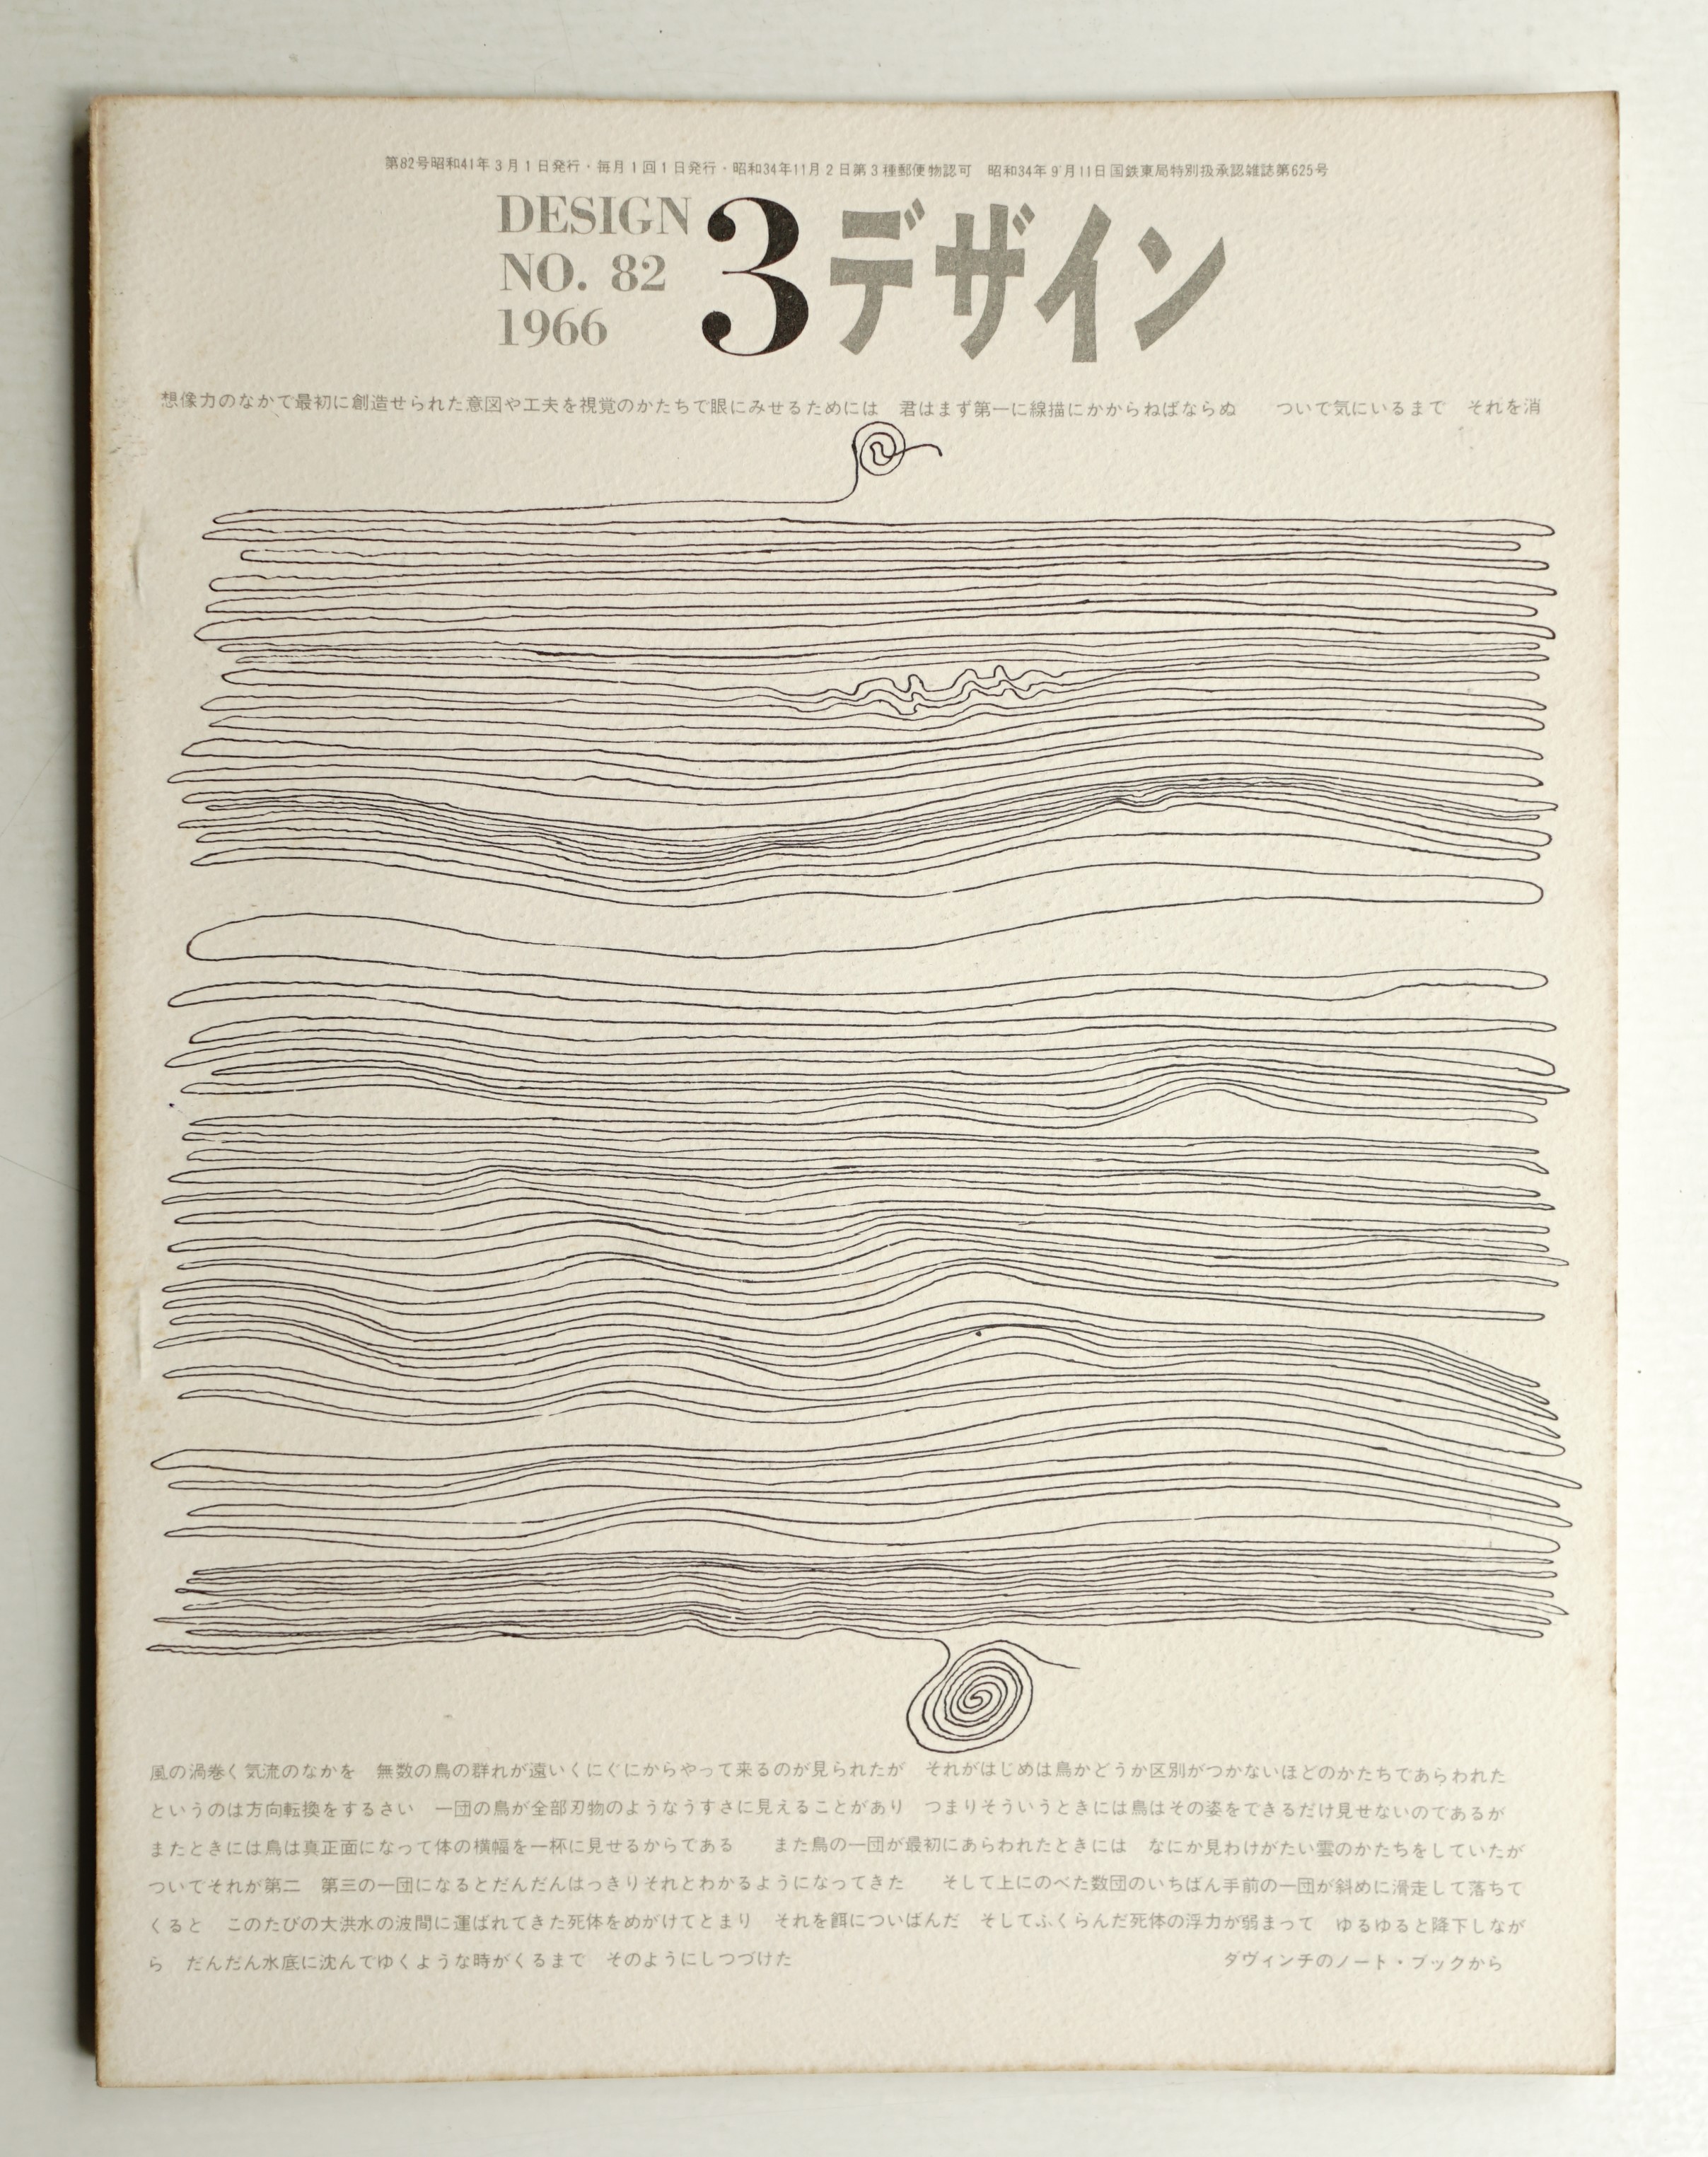 第82号昭和41年3月1日発行・毎月1回1日発行・昭和34年11月2日第3種郵便物認可　昭和34年9月11日国鉄東局特別扱承認雑誌第625号
DESIGN
NO. 82
1966
3
デザイン
想像力のなかで最初に創造せられた意図や工夫を視覚のかたちで眼にみせるためには　君はまず第一に線描にかからねばならぬ　　ついで気にいるまで　それを消
風の渦巻く気流のなかを　無数の鳥の群れが遠いくにぐにからやって来るのが見られたが　それがはじめは鳥かどうか区別がつかないほどのかたちであらわれた
というのは方向転換をするさい　一団の鳥が全部刃物のようなうすさに見えることがあり　つまりそういうときには鳥はその姿をできるだけ見せないのであるが
またときには鳥は真正面になって体の横幅を一杯に見せるからである　　また鳥の一団が最初にあらわれたときには　なにか見わけがたい雲のかたちをしていたが
ついでそれが第二　第三の一団になるとだんだんはっきりそれとわかるようになってきた　　そして上にのべた数団のいちばん手前の一団が斜めに滑走して落ちて
くると　このたびの大洪水の波間に運ばれてきた死体をめがけてとまり　それを餌についばんだ　そしてふくらんだ死体の浮力が弱まって　ゆるゆると降下しなが
ら　だんだん水底に沈んでゆくような時がくるまで　そのようにしつづけた
ダヴィンチのノート・ブックから